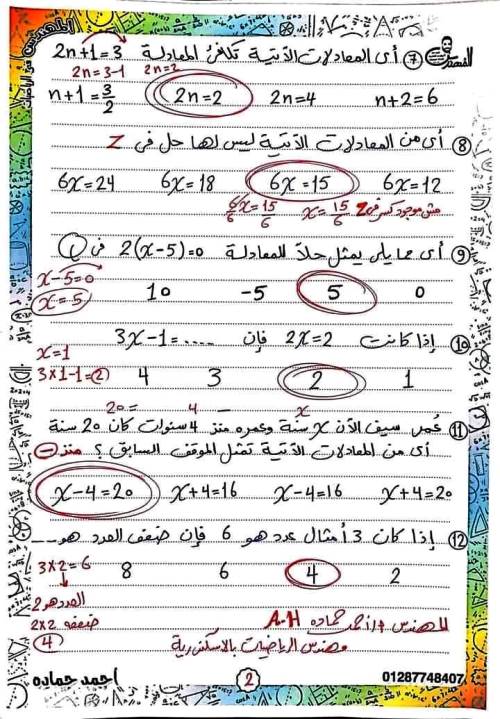 المهندس فى الرياضيات
⑦ أى المعادلات الآتية تكافئ المعادلة 2n+1=3
2n=3-1 2n=2
n+1=3/2 2n=2 2n=4 n+2=6
⑧ أى من المعادلات الآتية ليس لها حل فى Z
6x=24 6x=18 6x=15 6x=12
6x/6=15/6 x=15/6 مش موجود كسر فى Z
⑨ أى مما يلى يمثل حلاً للمعادلة 2(x-5)=0 فى Q
x-5=0
x=5 10 -5 5 0
⑩ إذا كانت 2x=2 فإن 3x-1=....
x=1
3x1-1=2 4 3 2 1
20= 4 - x
⑪ عُمر سيف الآن x سنة وعمره منذ 4 سنوات كان 20 سنة
أى من المعادلات الآتية تمثل الموقف السابق ؟ منذ -
x-4=20 x+4=16 x-4=16 x+4=20
⑫ إذا كان 3 أمثال عدد هو 6 فإن ضعف العدد هو...
3x2=6 8 6 4 2
العدد هو 2
ضعفه 2x2
4
المهندس أ/أحمد حماده A.H
مهندس الرياضيات بالاسكندرية
احمد حماده 2 01287748407